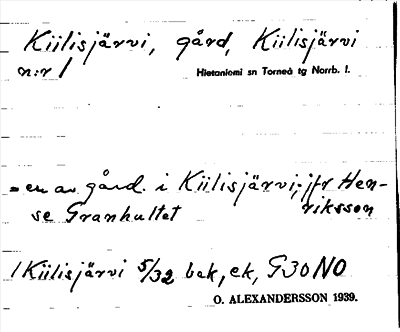 Kiilisjärvi, gård, Kiilisjärvi
n:r 1
Hietaniemi sn Torneå tg Norrb. l.
= en av gård. i Kiilisjärvi; jfr Hen-
riksson
se Granhultet
1 Kiilisjärvi 5/32 bak, ek, G30NO
O. ALEXANDERSSON 1939.